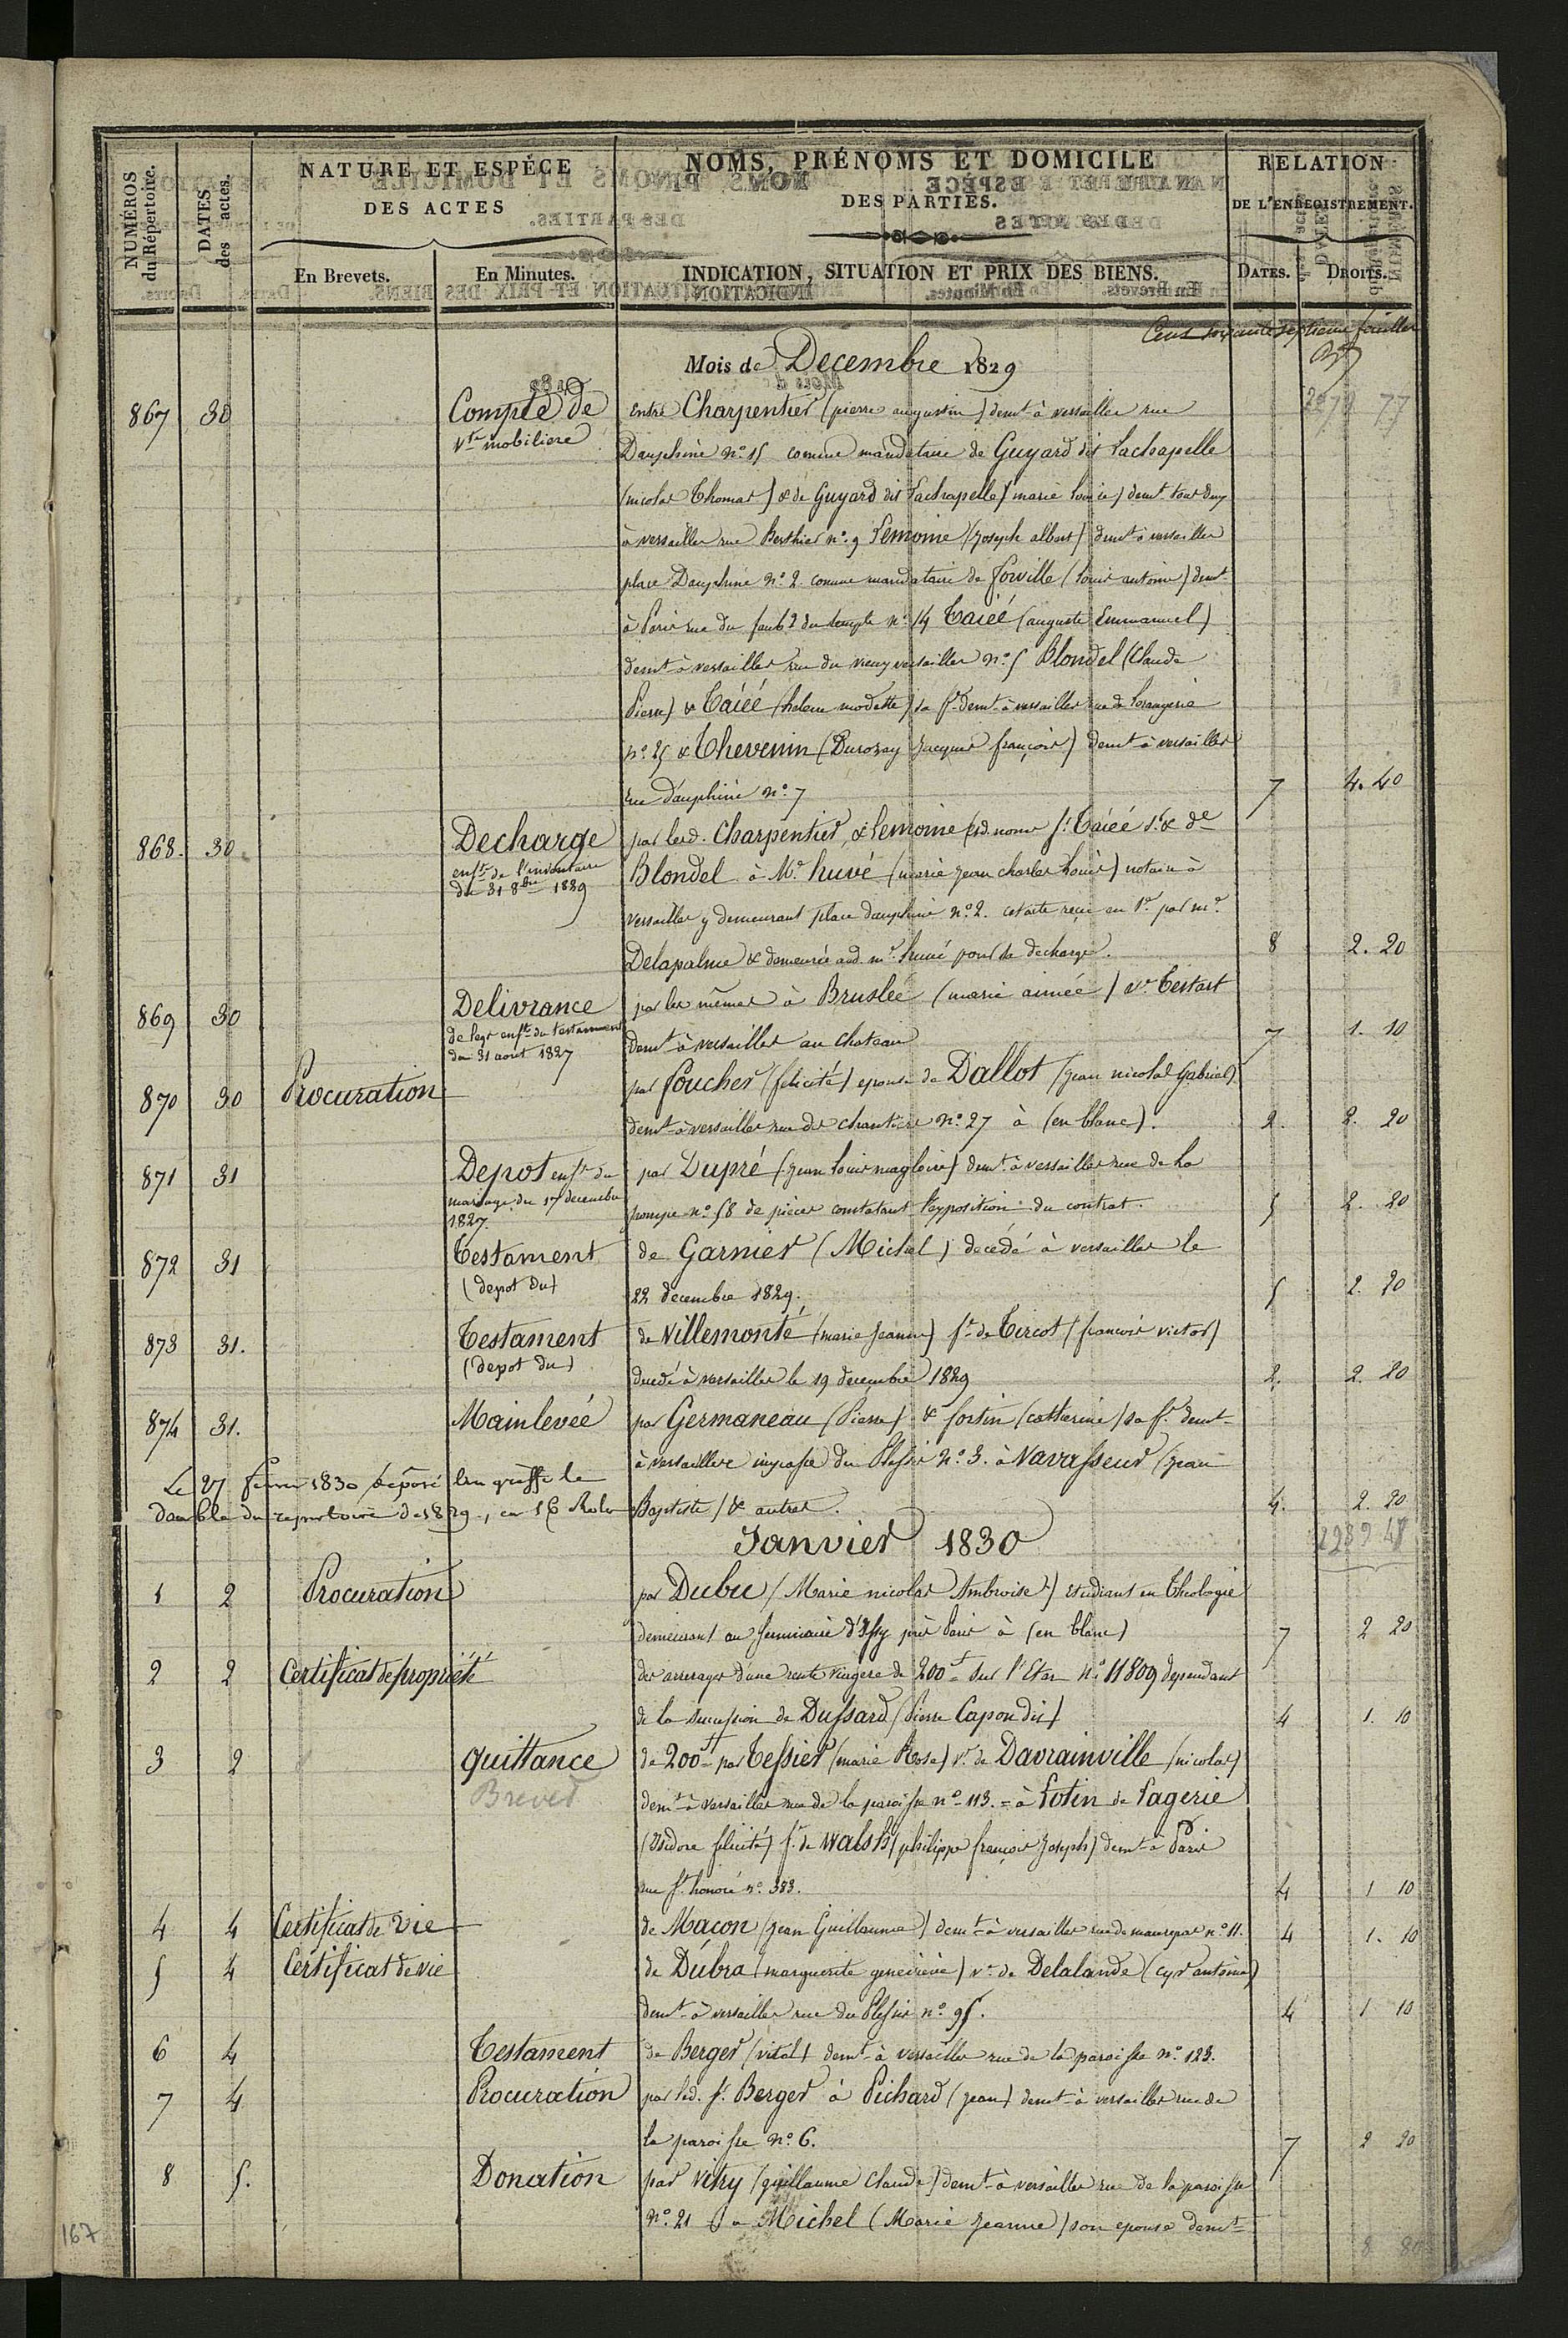 NUMÉROS du Répertoire.
DATES des actes.
NATURE ET ESPÉCE
DES ACTES
En Brevets.
En Minutes.
NOMS, PRÉNOMS ET DOMICILE
DES PARTIES.
INDICATION, SITUATION ET PRIX DES BIENS.
RELATION
DE L'ENREGISTREMENT.
DATES.
DROITS.
Cent soixante septieme feuillet
Mois de Decembre 1829
867 30 Compte de entre Charpentier (pierre augustin) demt à versailles rue
vte mobiliere Dauphine no. 15 comme mandataire de Guyard dit Lachapelle
(nicolas Thomas) & de Guyard dit Lachapelle (marie Louise) demt tous deux
à versailles rue Berthier no. 9 Lemoine (Joseph albert) demt à versailles
place Dauphine no. 2 comme mandataire de Forville (Louis antoine) demt
à Paris rue du faubg du temple no. 14 Taiéé (auguste Emmanuel)
demt à versailles rue du vieux versailles no. 5 Blondel (Claude
Pierre) & Taiéé (helene modeste) sa fe demt à versailles rue de Lorangerie
no. 25 & Thevenin (Durozay Jacques françois) demt à versailles
rue dauphine no. 7 7 4. 40
868. 30 Decharge par lesd. Charpentier, & Lemoine esd. noms sr. Taiéé sr. & de
enste de l'inventaire Blondel à Me. huvé (marie jean charles Louis) notaire à
du 31 8bre 1829 versailles y demeurant place dauphine no. 2. cet acte reçu en 1er par me.
Delapalme & demeurée aud. me. huvé pour sa decharge. 8 2. 20
869 30 Delivrance par les mêmes à Bruslée (marie aimée) ve. Testart
de legs enste du testament demt à versailles au chateau 7 1. 10
du 31 aout 1827
870 30 Procuration par Foucher (felicité) epouse de Dallot (jean nicolas Gabriel)
demt à versailles rue des chantiers no. 27 à (en blanc). 2. 2. 20
871 31 Depot enste du par Dupré (jean Louis magloire) demt à versailles rue de la
mariage du 17 decembre pompe no. 58 de pièces constatant l'exposition du contrat. 5 2. 20
1827.
872 31 Testament de Garnier (Michel) decédé à versailles le
(depot du) 22 decembre 1829. 5 2. 20
873 31. Testament de Villemonté (marie Jeanne) fe de Tircot (francois victor)
(depot du) decedé à versailles le 19 decembre 1829 2. 2. 20
874 31. Mainlevéé par Germaneau (Pierre) & fortin (catherine) sa fe. demt
à versailles impasse du Plessis no. 3. à Navasseur (jean
Le 27 fevrier 1830 deposé au greffe le
double du repertoire de 1829, en 16 Roles
Baptiste) & autres. 4. 2. 20
2939 48
Janvier 1830
1 2 Procuration par Dubu (Marie nicolas Ambroise) etudiant en theologie
demeurant au seminaire d'Issy près Paris à (en blanc) 7 2 20
2 2 Certificat de propriété des arrerages d'une rente viagere de 200tt sur l'Etat no. 11809 dependant
de la succession de Dussard (Pierre Capon dit) 4 1. 10
3 2 quittance de 200tt par Tessier (marie Rose) ve. de Davrainville (nicolas)
Brevet demt à versailles rue de la paroisse no. 113. = à Lotin de Lagerie
(Isidore felicité) fe. de Walsh (philippe françois Joseph) demt à Paris
rue st. honoré no. 383. 4 1 10
4 4 Certificat de vie de Macon (jean Guillaume) demt à versailles rue de maurepas no. 11. 4 1. 10
5 4 Certificat de vie de Dubra (marguerite genevieve) ve. de Delalande (cyr antoine)
demt à versailles rue du Plessis no. 95. 4 1 10
6 4 Testament de Berger (vital) demt à versailles rue de la paroisse no. 123.
7 4 Procuration par led. sr. Berger à Pichard (jean) demt à versailles rue de
la paroisse no. 6. 7 2 20
8 5. Donation par Vitry (guillaume Claude) demt à versailles rue de la paroisse
no. 21 à Michel (Marie Jeanne) son epouse demt
8 80
167